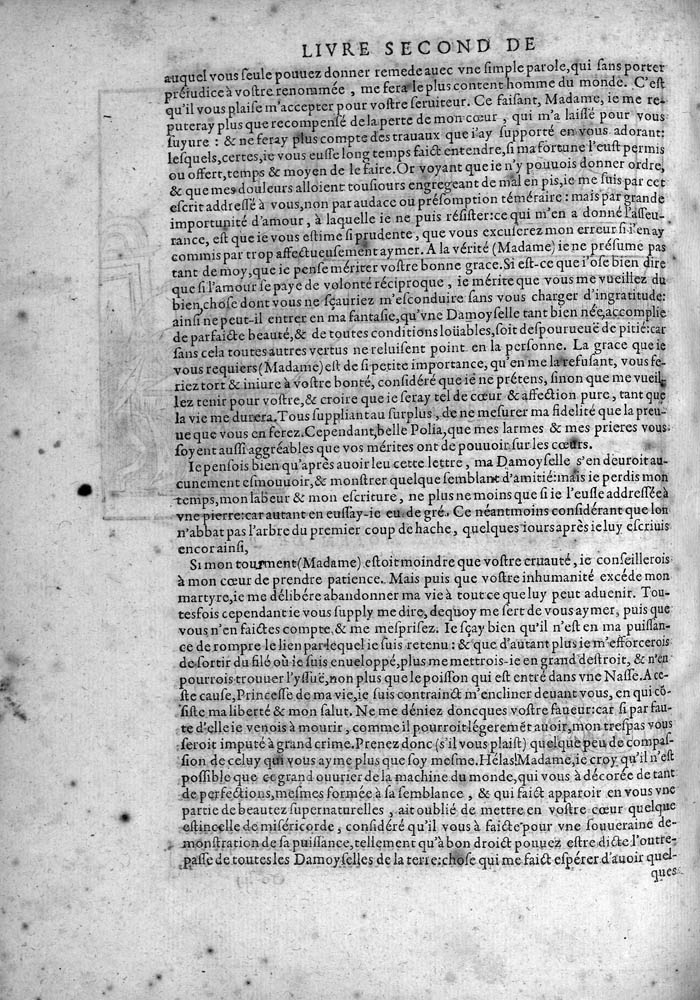 LIVRE SECOND DE
auquel vous ſeule pouuez donner remede auec vne ſimple parole,qui ſans porter
préiudice à voſtre renommée , me fera le plus content homme du monde. C'eſt
qu'il vous plaiſe m'accepter pour voſtre ſeruiteur. Ce faiſant, Madame, ie me re-
puteray plus que recompenſé de la perte de mon cœur , qui m'a laiſſé pour vous
ſuyure : & ne feray plus compte des trauaux que i'ay ſupporté en vous adorant:
leſquels,certes,ie vous euſſe long temps faict entendre,ſi ma fortune l'euſt permis
ou offert,temps & moyen de le faire.Or voyant que ie n'y pouuois donner ordre,
& que mes douleurs alloient touſiours engregeant de mal en pis,ie me ſuis par cet
eſcrit addreſſé à vous,non par audace ou préſomption téméraire : mais par grande
importunité d'amour , à laquelle ie ne puis réſiſter:ce qui m'en a donné l'aſſeu-
rance, eſt que ie vous eſtime ſi prudente , que vous excuſerez mon erreur ſi i'en ay
commis par trop affectueuſement aymer. A la vérité (Madame) ie ne préſume pas
tant de moy,que ie penſe mériter voſtre bonne grace.Si eſt-ce que i'oſe bien dire
que ſi l'amour ſe paye de volonté réciproque , ie mérite que vous me vueillez du
bien,choſe dont vous ne ſçauriez m'eſconduire ſans vous charger d'ingratitude:
ainſi ne peut-il entrer en ma fantaſie,qu'vne Damoyſelle tant bien née,accomplie
de parfaicte beauté,& de toutes conditions loüables,ſoit deſpourueuë de pitié:car
ſans cela toutes autres vertus ne reluiſent point en la perſonne. La grace que ie
vous requiers(Madame) eſt de ſi petite importance, qu'en me la refuſant, vous fe-
riez tort & iniure à voſtre bonté, conſidéré que ie ne prétens, ſinon que me vueil-
lez tenir pour voſtre,& croire que ie ſeray tel de cœur & affection pure, tant que
la vie me durera.Tous ſuppliant au ſurplus , de ne meſurer ma fidelité que la preu-
ue que vous en ferez.Cependant,belle Polia,que mes larmes & mes prieres vous
ſoyent auſſi aggréables que vos mérites ont de pouuoir ſur les cœurs.
Ie penſois bien qu'après auoir leu cette lettre , ma Damoyſelle s'en deuroit au-
cunement eſmouuoir,& monſtrer quelque ſemblant d'amitié:mais ie perdis mon
temps,mon labeur & mon eſcriture, ne plus ne moins que ſi ie l'euſſe addreſſée à
vne pierre:car autant en euſſay-ie eu de gré. Ce néantmoins conſidérant que lon
n'abbat pas l'arbre du premier coup de hache, quelques iours après ie luy eſcriuis
encor ainſi,
Si mon tourment(Madame) eſtoit moindre que voſtre cruauté, ie conſeillerois
à mon cœur de prendre patience. Mais puis que voſtre inhumanité excéde mon
martyre,ie me délibére abandonner ma vie à tout ce que luy peut aduenir. Tou-
tesfois cependant ie vous ſupply me dire, dequoy me ſert de vous aymer, puis que
vous n'en faictes compte,& me meſpriſez. Ie ſçay bien qu'il n'eſt en ma puiſſan-
ce de rompre le lien par lequel ie ſuis retenu : & que d'autant plus ie m'efforcerois
de ſortir du filé où ie ſuis enueloppé,plus me mettrois-ie en grand deſtroit, & n'en
pourrois trouuer l'yſſuë,non plus que le poiſſon qui eſt entré dans vne Naſſe.A ce-
ſte cauſe,Princeſſe de ma vie,ie ſuis contrainct m'encliner deuant vous, en qui cō-
ſiſte ma liberté & mon ſalut. Ne me déniez doncques voſtre faueur:car ſi par fau-
te d'elle ie venois à mourir , comme il pourroit légeremēt auoir,mon treſpas vous
ſeroit imputé à grand crime.Prenez donc (s'il vous plaiſt) quelque peu de compaſ-
ſion de celuy qui vous ayme plus que ſoy meſme.Hélas!Madame,ie croy qu'il n'eſt
poſſible que ce grand ouurier de la machine du monde,qui vous à décorée de tant
de perfections,meſmes formée à ſa ſemblance , & qui faict apparoir en vous vne
partie de beautez ſupernaturelles , ait oublié de mettre en voſtre cœur quelque
eſtincelle de miſéricorde, conſidéré qu'il vous à faicte pour vne ſouueraine de-
monſtration de ſa puiſſance,tellement qu'à bon droict pouuez eſtre dicte l'outre-
paſſe de toutes les Damoyſelles de la terre:choſe qui me faict eſpérer d'auoir quel-
ques